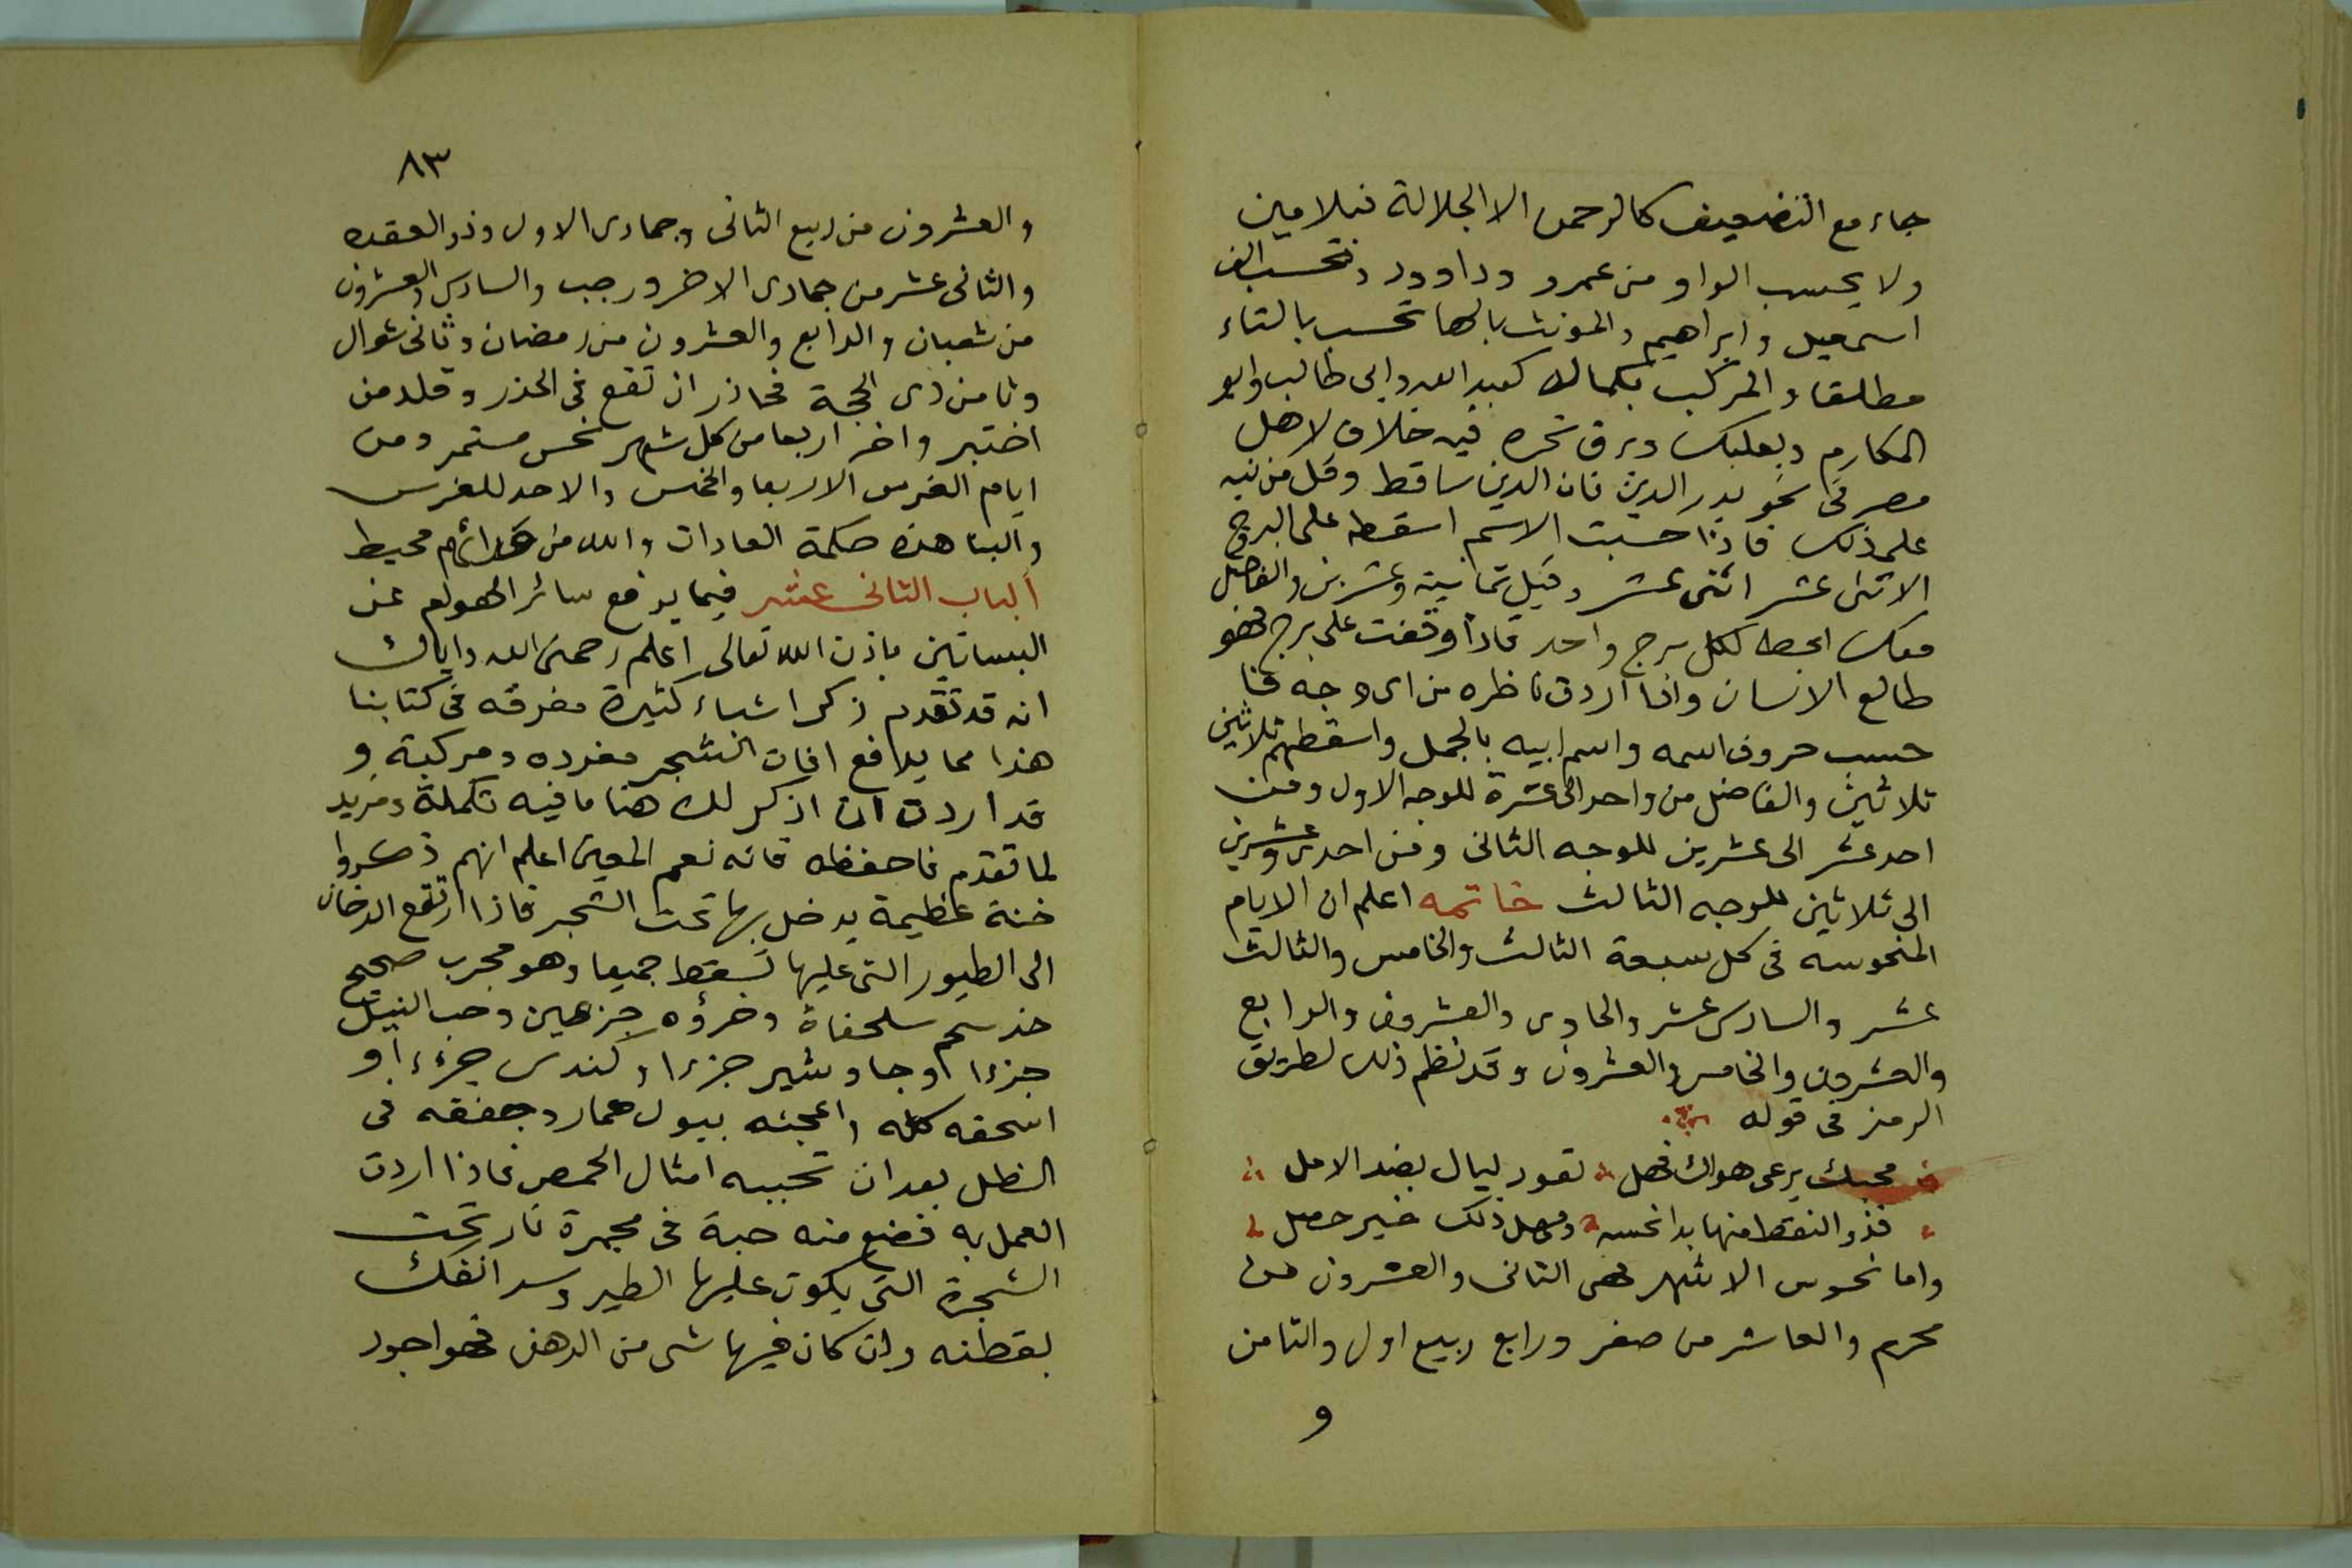 جاء مع التضعيف كالرحمن الا الجلالة فبلامين
ولا يحسب الواو من عمرو وداوود وتحسب الف
اسمعيل وابراهيم والمونث بالها تحسب بالتاء
مطلقا والمركب بكماله كعبد الله وابى طالب وابو
المكارم وبعلبك وبرق نحره فيه خلاف لاهل
مصر فى نحو بدر الدين فان الدين ساقط وقل من نبه
على ذلك فاذا حسبت الاسم اسقطه على البروج
الاثنى عشر اثنى عشر وقيل ثمانية وعشرين والفاضل
معك اعط لكل برج واحد فاذا وقفت على برج فهو
طالع الانسان واذا اردت ناظره من اى وجه فا
حسب حروف اسمه واسم ابيه بالجمل واسقطهم ثلاثين
ثلاثين والفاضل من واحد الى عشرة للوجه الاول ومن
احد عشر الى عشرين للوجه الثانى ومن احدى وعشرين
الى ثلاثين للوجه الثالث خاتمه اعلم ان الايام
المنحوسه فى كل سبعة الثالث والخامس والثالث
عشر والسادس عشر والحادى والعشرون والرابع
والعشرون والخامس والعشرون وقد نظم ذلك بطريق
الرمز فى قوله
محبك يرعى هواك فهل تعود ليال بضد الامل
فذو النقط منها بدا نحسه ومهمل ذلك خير حصل
واما نحوس الاشهر فهى الثانى والعشرون من
محرم والعاشر من صفر ورابع ربيع اول والثامن
و
٨٣
والعشرون من ربيع الثانى وجمادى الاول وذو العقده
والثانى عشر من جمادى الاخر ورجب والسادس والعشرون
من شعبان والرابع والعشرون من رمضان وثانى شوال
وثامن ذى الحجة فحاذر ان تقع فى الحذر وقلد من
اختبر واخر اربعا من كل شهر نحس مستمر ومن
ايام الغرس الاربعا والخمس والاحد للغرس
والبنا هذه حكمة العادات والله من ورائهم محيط
الباب الثانى عشر فيما يدفع سائر الهوام عن
البساتين باذن الله تعالى اعلم رحمك الله واياك
انه قد تقدم ذكر اشياء كثيرة مفرقه فى كتابنا
هذا مما يدافع افات الشجر مفرده ومركبة و
قد اردت ان اذكر لك هنا ما فيه تكملة ومزيد
لما تقدم فاحفظه فانه نعم المعين اعلم انهم ذكروا
خنة عظيمة يدخل بها تحت الشجر فاذا ارتفع الدخان
الى الطيور التى عليها تسقط جميعا وهو مجرب صحيح
خذ سحم سلحفاة وخرؤه جزءين وحب النيل
جزءا وجاوشير جزءا وكندس جزءا و
اسحقه كله واعجنه ببول حمار وجففه فى
الظل بعد ان تحببه امثال الحمص فاذا اردت
العمل به فضع منه حبة فى مجمرة نار تحت
الشجرة التى يكون عليها الطير وسد انفك
بقطنه وان كان فيها شى من الدهن فهو اجود